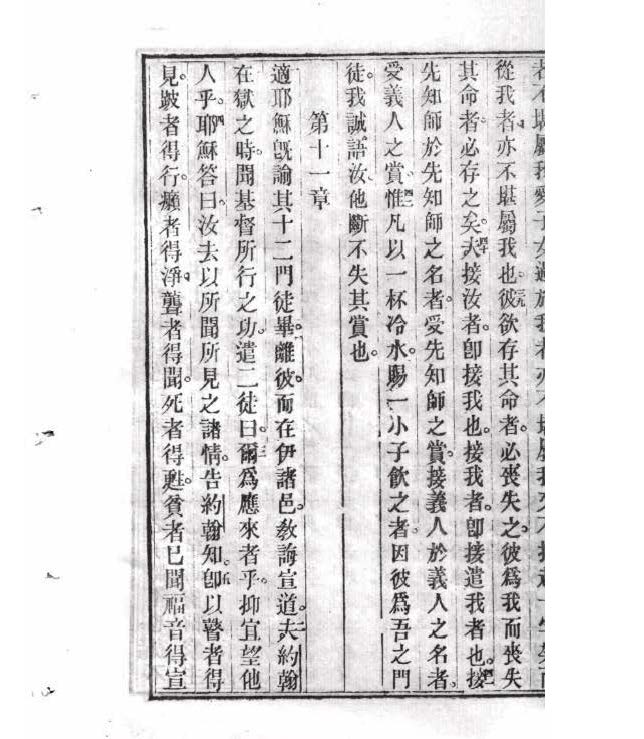 者不堪屬我愛子女過於我者亦不堪屬我又不
從我者亦不堪屬我也。三九彼欲存其命者。必喪失之。彼爲我而喪失
其命者必存之矣。四十夫接汝者。卽接我也。接我者。卽接遣我者也。四一接
先知師於先知師之名者。受先知師之賞。接義人於義人之名者。
受義人之賞。四二惟凡以一杯冷水賜一小子飲之者。因彼爲吾之門
徒。我誠語汝。他斷不失其賞也。
第十一章
適耶穌旣諭其十二門徒畢。離彼而在伊諸邑。教誨宣道。二夫約翰
在獄之時。聞基督所行之功。遣二徒曰。三爾爲應來者乎。抑宜望他
人乎。四耶穌答曰。汝去以所聞所見之諸情。告約翰知。五卽以瞽者得
見。跛者得行。癩者得淨。聾者得聞。死者得甦。貧者已聞福音得宣